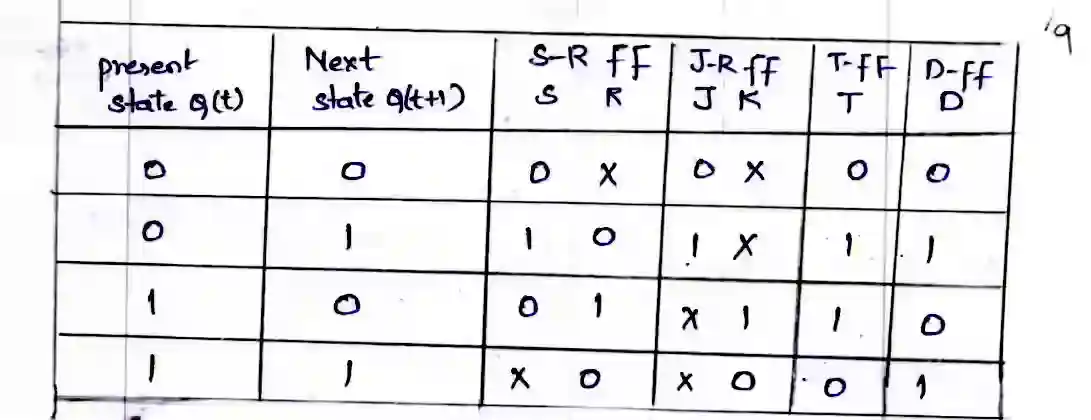 19
present Next S-R ff J-R ff T-ff D-ff
state Q(t) state Q(t+1) S R J K T D
0 0 0 x 0 x 0 0
0 1 1 0 1 x 1 1
1 0 0 1 x 1 1 0
1 1 x 0 x 0 0 1